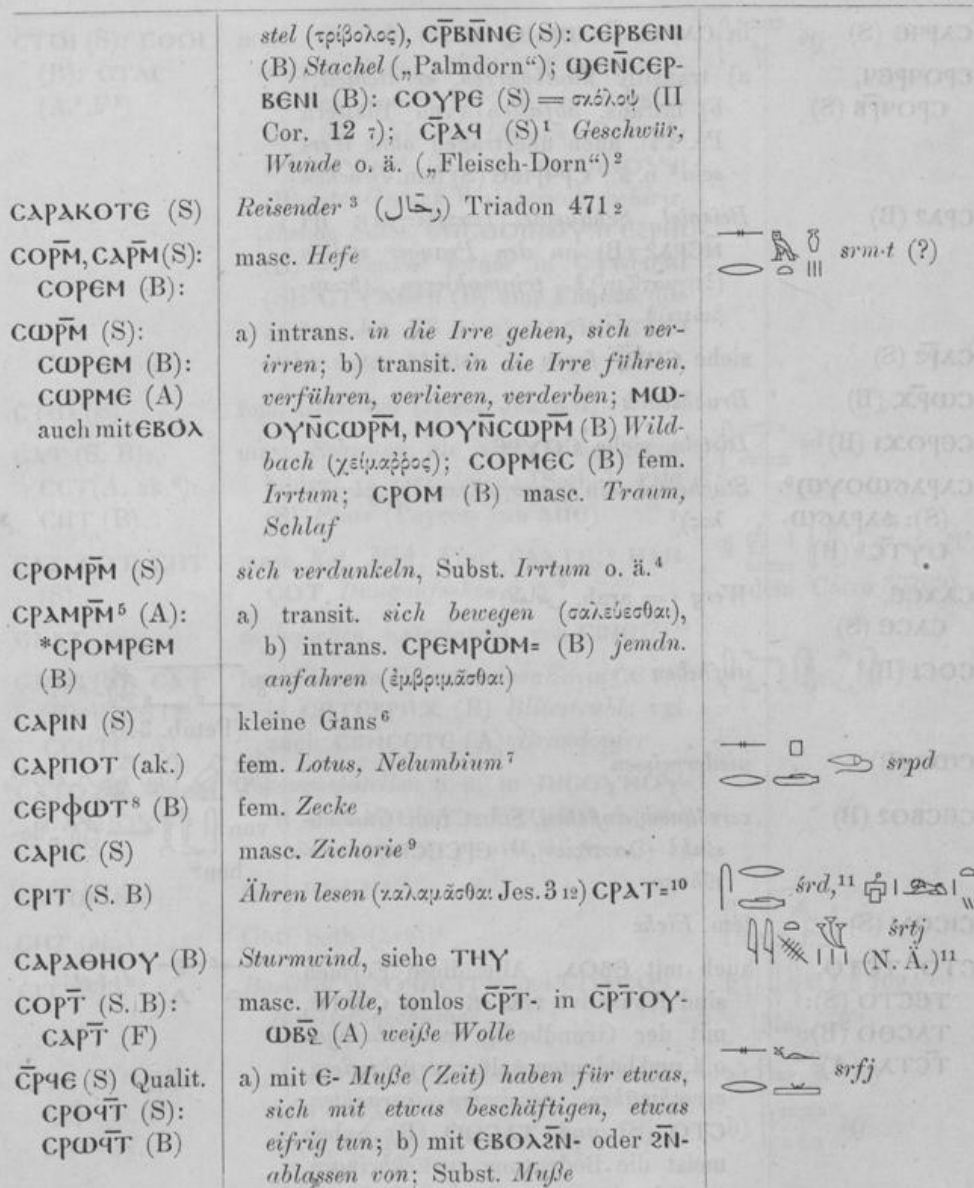 stel (τρίβολος), ⲤⲢ̄ⲂⲚ̄ⲚⲈ (S): ⲤⲈⲢⲂⲈⲚⲒ
(B) Stachel („Palmdorn“); ϢⲈⲚ̄ⲤⲈⲢ-
ⲂⲈⲚⲒ (B): ⲤⲞⲨⲢⲈ (S) = σκόλοψ (II
Cor. 12 7); ⲤⲢ̄ⲀϤ (S)¹ Geschwür,
Wunde o. ä. („Fleisch-Dorn“)²
ⲤⲀⲢⲀⲔⲞⲦⲈ (S) Reisender³ (رحّال) Triadon 471 2
ⲤⲞⲢⲘ̄, ⲤⲀⲢⲘ̄ (S): masc. Hefe srm·t (?)
ⲤⲞⲢⲈⲘ (B):
ⲤⲰⲢⲘ̄ (S): a) intrans. in die Irre gehen, sich ver-
ⲤⲰⲢⲈⲘ (B): irren; b) transit. in die Irre führen,
ⲤⲰⲢⲘⲈ (A) verführen, verlieren, verderben; ⲘⲰ-
auch mit ⲈⲂⲞⲖ ⲞⲨⲚ̄ⲤⲰⲢⲘ̄, ⲘⲞⲨⲚ̄ⲤⲰⲢⲘ̄ (B) Wild-
bach (χείμαῤῥος); ⲤⲞⲢⲘⲈⲤ (B) fem.
Irrtum; ⲤⲢⲞⲘ (B) masc. Traum,
Schlaf
ⲤⲢⲞⲘⲢⲘ̄ (S) sich verdunkeln, Subst. Irrtum o. ä.⁴
ⲤⲢⲀⲘⲢⲘ̄⁵ (A): a) transit. sich bewegen (σαλεύεσθαι),
*ⲤⲢⲞⲘⲢⲈⲘ b) intrans. ⲤⲢⲈⲘⲢⲰ̀Ⲙ= (B) jemdn.
(B) anfahren (ἐμβριμᾶσθαι)
ⲤⲀⲢⲒⲚ (S) kleine Gans⁶
ⲤⲀⲢⲠⲞⲦ (ak.) fem. Lotus, Nelumbium⁷ srpd
ⲤⲈⲢⲪⲰⲦ⁸ (B) fem. Zecke
ⲤⲀⲢⲒⲤ (S) masc. Zichorie⁹
ⲤⲢⲒⲦ (S. B) Ähren lesen (καλαμᾶσθαι Jes. 3 12) ⲤⲢⲀⲦ=¹⁰ śrd,¹¹
śrtj
ⲤⲀⲢⲀⲐⲎⲞⲨ (B) Sturmwind, siehe ⲦⲎⲨ (N. Ä.)¹¹
ⲤⲞⲢⲦ̄ (S. B): masc. Wolle, tonlos ⲤⲢ̄Ⲧ- in ⲤⲢ̄ⲦⲞⲨ-
ⲤⲀⲢⲦ̄ (F) ⲰⲂϨ̄ (A) weiße Wolle
ⲤⲢ̄ϤⲈ (S) Qualit. a) mit Ⲉ- Muße (Zeit) haben für etwas, srfj
ⲤⲢⲞϤⲦ̄ (S): sich mit etwas beschäftigen, etwas
ⲤⲢⲰϤⲦ̄ (B) eifrig tun; b) mit ⲈⲂⲞⲖϨⲚ̄- oder ϨⲚ̄-
ablassen von; Subst. Muße